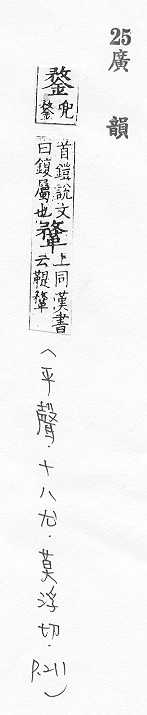 25廣韻
鍪
兜
鍪
首鎧說文
曰鍑屬也
鞪
上同漢書
云鞮鞪
(平聲．十八尤．莫浮切．P.211)